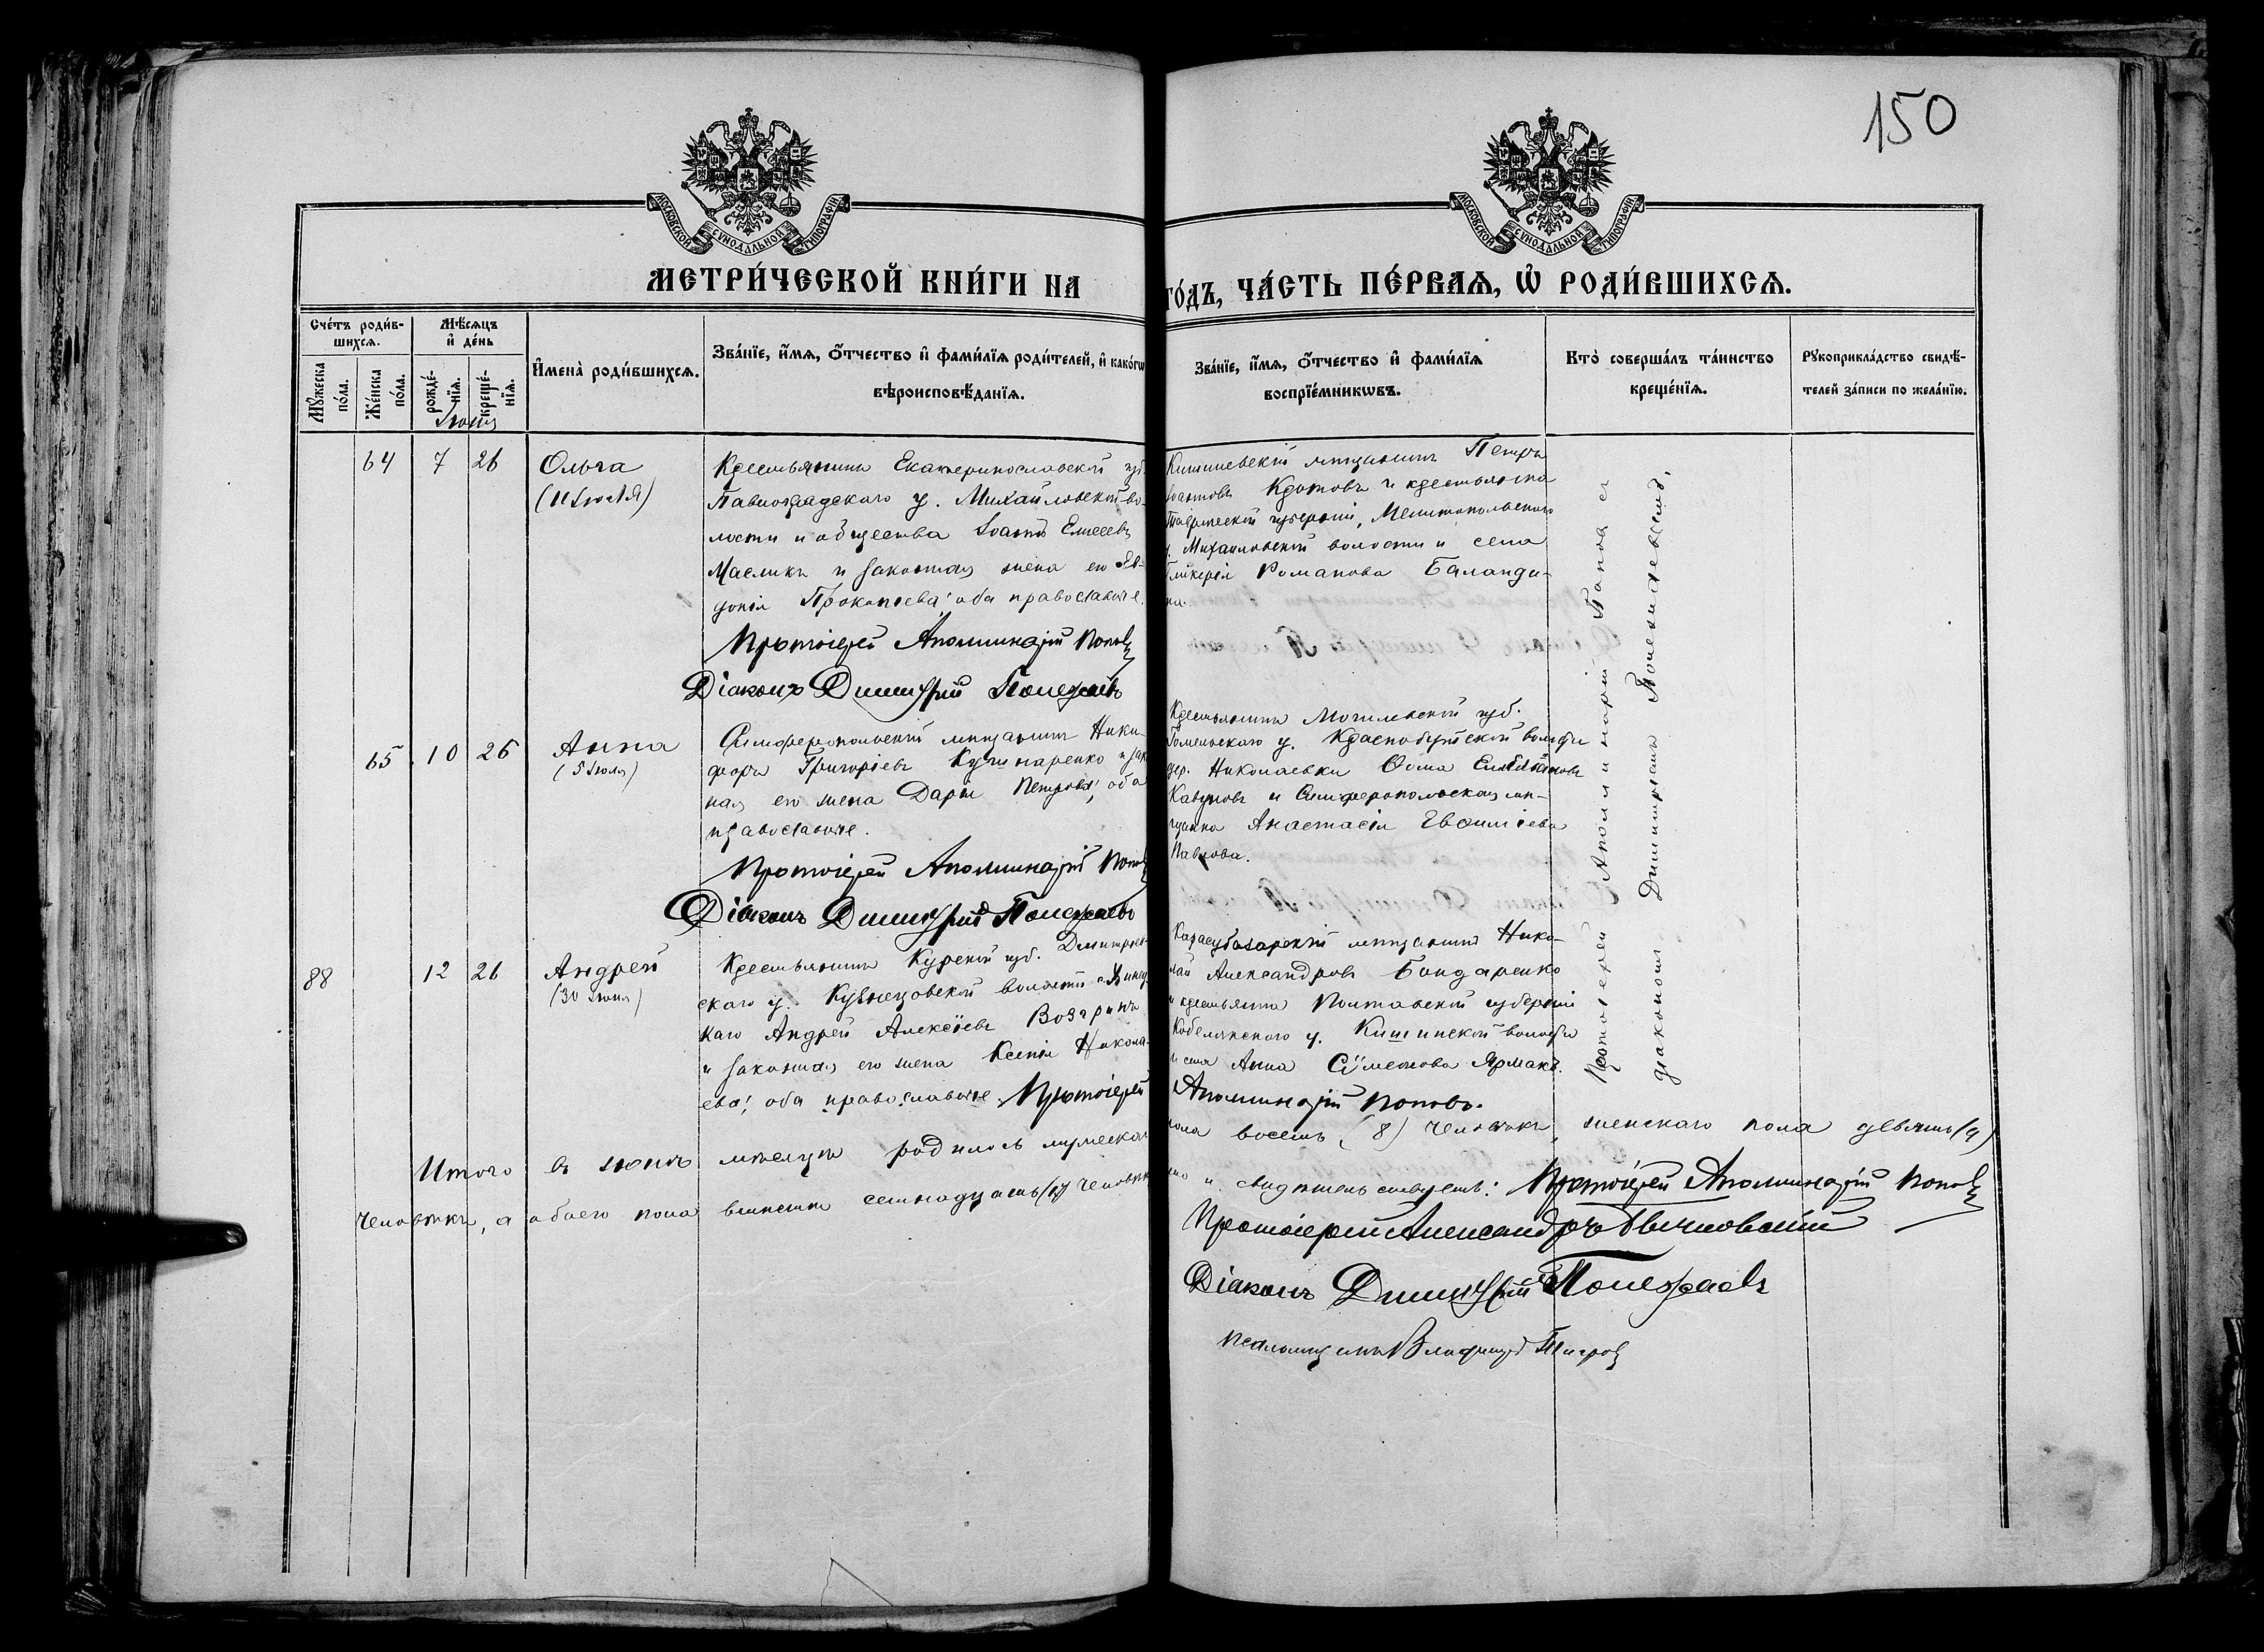 150
МОСКОВСКОЙ СѴНОДАЛЬНОЙ ТИПОГРАФІИ
МОСКОВСКОЙ СѴНОДАЛЬНОЙ ТИПОГРАФІИ
МЕТРИ́ЧЕСКОЙ КНИ́ГИ НА
ГО́ДЪ, ЧА́СТЬ ПЕ́РВАѦ, Ѡ҆ РОДИ́ВШИХСѦ.
Сче́тъ роди́в-
шихсѧ.
Мꙋ́жеска по́ла.
Же́нска по́ла.
Мѣ́сѧцъ и҆ де́нь
рожде́-нїѧ.
креще́-нїѧ.
Іюня
И҆мена̀ роди́вшихсѧ.
Зва́нїе, и҆́мѧ, ѻ҆́тчество и҆ фами́лїѧ роди́телей, и҆ како́гѡ
вѣроисповѣ́данїѧ.
Зва́нїе, и҆́мѧ, ѻ҆́тчество и҆ фами́лїѧ
воспрїе́мникѡвъ.
Кто̀ соверша́лъ та́инство
креще́нїѧ.
Рꙋкоприкла́дство свидѣ́-
телей за́писи по жела́нїю.
64 7 26 Ольга
(11 Іюля)
Крестьянинъ Екатеринославской губ.
Павлоградскаго у. Михайловской во-
лости и общества Іоаннъ Елисеевъ
Масликъ и законная жена его Ев-
докія Прокопіева; оба православные.
Протоіерей Аполлинарій Поповъ
Діаконъ Димитрій Полежаевъ
Кишиневскій мѣщанинъ Петръ
Іоанновъ Кротовъ и крестьянка
Таврической губерніи, Мелитопольскаго
у. Михайловской волости и села
Гликерія Романова Баланди-
на.
65 10 26 Анна
(5 Іюля)
Симферопольскій мѣщанинъ Ники-
форъ Григоріевъ Кушнаренко и зак
ная его жена Дарія Петрова; оба
православные.
Протоіерей Аполлинарій Поповъ
Діаконъ Димитрій Полежаевъ
Крестьянинъ Могилевской губ.
Гомельскаго у. Краснобудской волости
дер. Николаевки Ѳома
Кавуновъ и Симферопольская мѣ-
щанка Анастасія Евѳиміева
Павлова.
88 12 26 Андрей
(30 Іюня)
Крестьянинъ Курской губ. Дмитріев-
скаго у. Кузнецовской волости
каго Андрей Алексіевъ Возгринъ
и законная его жена Ксенія Никола-
ева; оба православные. Протоіерей
Карасубазарскій мѣщанинъ Нико-
лай Александровъ Бондаренко
и крестьянка Полтавской губерніи
Кобелякскаго у. Кишинской волости
и села Анна Сѵмеонова Ярмакъ.
Аполлинарій Поповъ.
Протоіерей Аполлинарій Поповъ съ
діакономъ Димитріемъ Полежаевымъ.
Итого въ іюнѣ мѣсяцѣ родилось мужескаго
пола восемь (8) человѣкъ, женскаго пола девять (9)
человѣкъ, а обоего пола вмѣстѣ семнадцать (17) человѣкъ
Протоіерей Аполлинарій Поповъ
Протоіерей Александръ
Діаконъ Димитрій Полежаевъ
Псаломщикъ Владиміръ